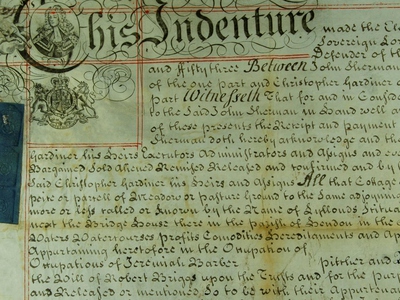 This Indenture made the Ele
Sovereign Lo
Defender of th
and Fifty three Between John Sherman
of the one part and Christopher Gardiner
part Witnesseth That for and in Conside
to the Said John Sherman in hand well an
of these presents the Receipt and payment
Sherman doth hereby acknowledge and the
Gardiner his Heirs Executors Administrators and Assigns and eve
Bargained Sold Aliened Remised Released and Confirmed and by th
Said Christopher Gardiner his Heirs and Assigns All that Cottage
peice or parcell of Meadow or pasture Ground to the Same adjoyning
more or less called or known by the Name of Situat
next the Bridge House there in the parish of Hendon in the
Waters Watercourses profits Commodities Hereditaments and App
Appurtaining heretofore in the Occupation of
Occupations of Jeremiah Barber pitcher and
the Will of Robert Brigs upon the Trusts and for the purp
and Released or mentioned So to be with their Appurtenan